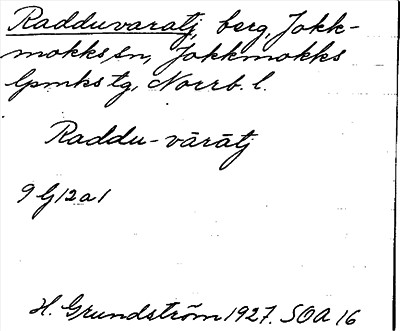 Radduvaratj, berg, Jokk-
mokks sn, Jokkmokks
lpmks tg, Norrb. l.
Raddu-vārātj
9 G 12 a 1
H. Grundström 1927. SOA 16